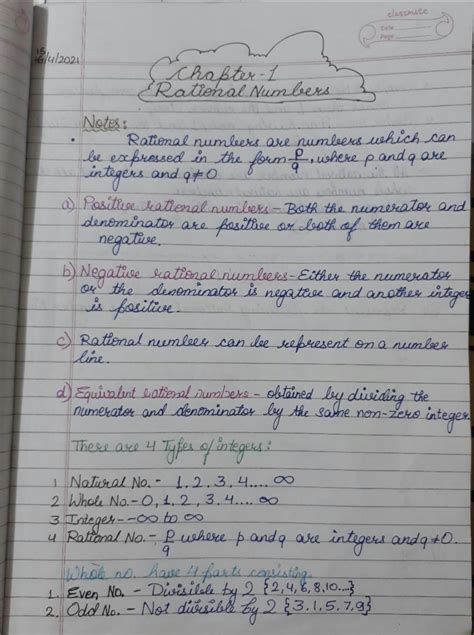 classmate
Date
Page
15/4/2021
Chapter-1
Rational Numbers
Notes:
• Rational numbers are numbers which can
be expressed in the form p/q, where p and q are
integers and q≠0
a) Positive rational numbers - Both the numerator and
denominator are positive or both of them are
negative.
b) Negative rational numbers - Either the numerator
or the denominator is negative and another integer
is positive.
c) Rational number can be represent on a number
line.
d) Equivalent rational numbers - obtained by dividing the
numerator and denominator by the same non-zero integer.
There are 4 Types of integers:
1 Natural No. - 1, 2, 3, 4.... ∞
2 Whole No. - 0, 1, 2, 3, 4.... ∞
3 Integer - -∞ to ∞
4 Rational No. - p/q where p and q are integers and q≠0.
Whole no. have 4 parts consisting.
1. Even No. - Divisible by 2 {2, 4, 6, 8, 10...}
2. Odd No. - Not divisible by 2 {3, 1, 5, 7, 9}